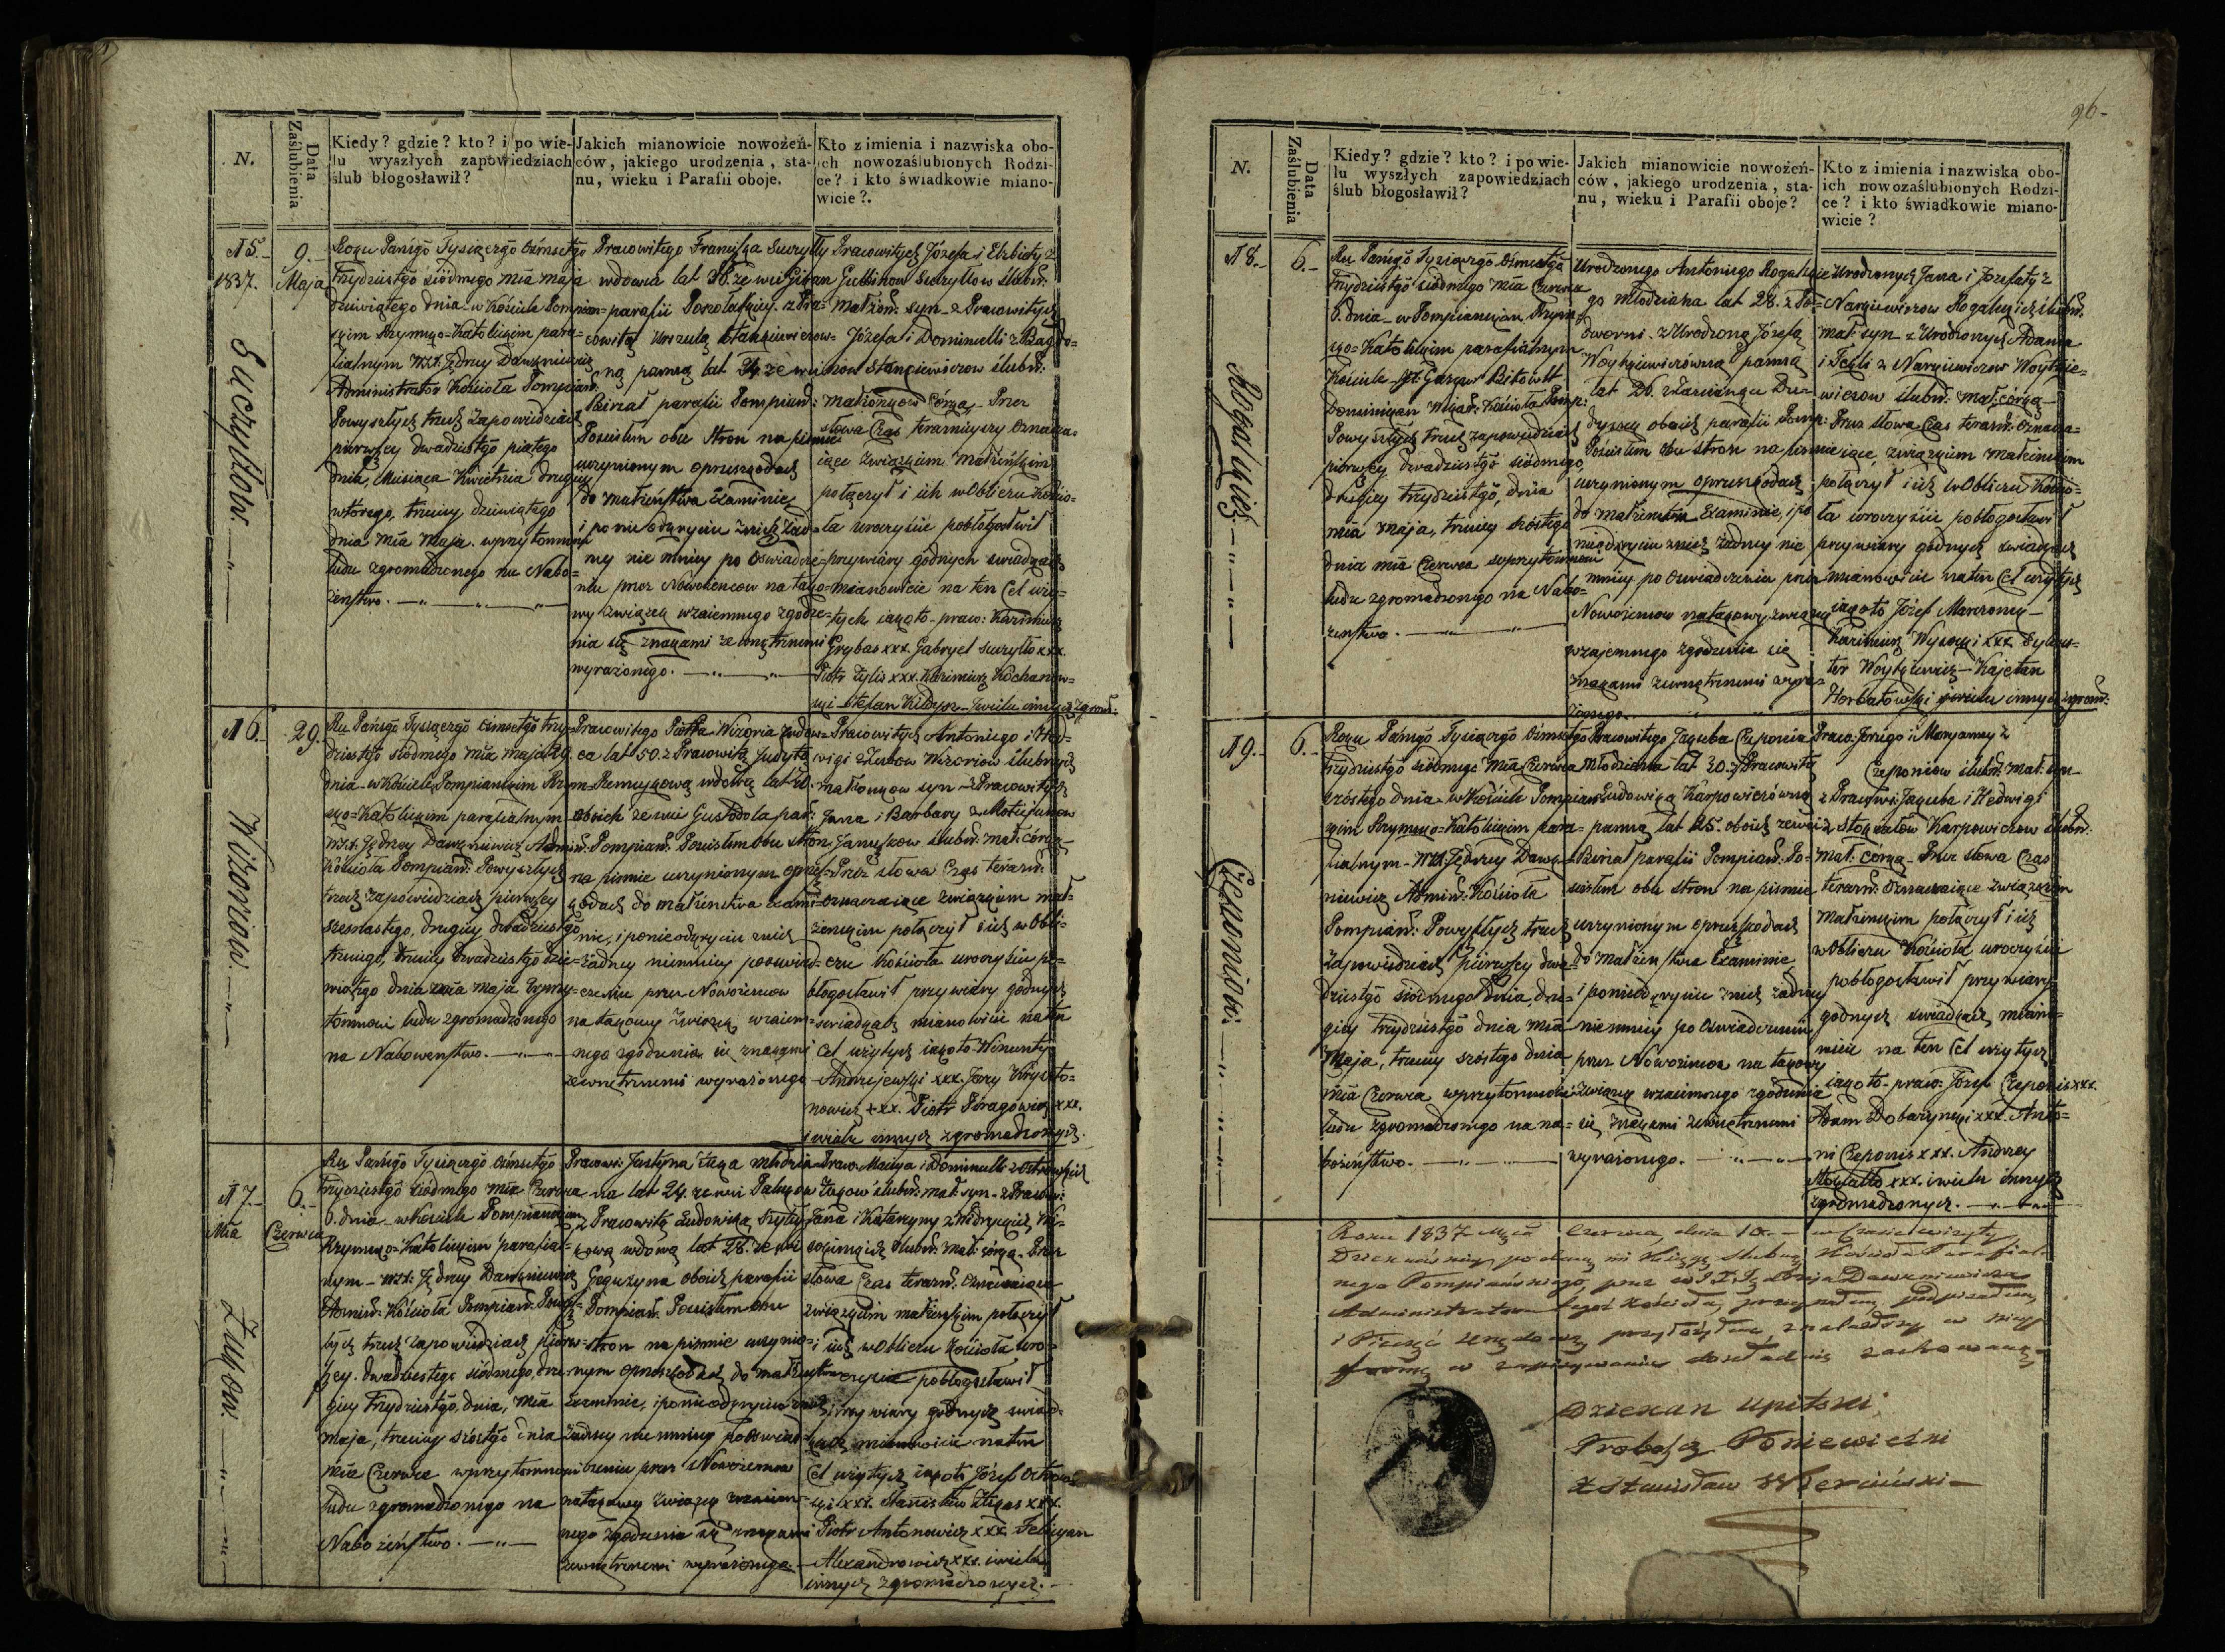 N.
Data Zaślubienia
Kiedy? gdzie? kto? i po wie-
lu wyszłych zapowiedziach
ślub błogosławił?
Jakich mianowicie nowożeń-
ców, jakiego urodzenia, sta-
nu, wieku i Parafii oboje.
Kto z imienia i nazwiska obo-
ich nowozaślubionych Rodzi-
ce? i kto świadkowie miano-
wicie?
15.
1837.
9.
Maja
Roku Pańigō Tysiącgō Ośmsetgō
Trzydziestgō siódmego mĩa maja
dziewiątego dnia w Kościele Pompian=
skim Rzymsko=Katolickim para=
fialnym
Administrator Kościoła Pompiań:
Powyszłych trzech zapowiedziach
pierwszey dwadziestgō piątego
dnia, Miesiąca Kwietnia drugiey
wtórego, trzeciey dziewiątego
dnia mĩa Maja w przytomności
ludu zgromadzonego na Nabo=
żeństwo.
Pracowitego Franciszka Suczyłły
wdowca lat 38. ze wsi
parafii
cowitą Urszulą Stankiewiczow=
ną panną lat 24 ze wsi
Biniał parafii Pompiań:
Poczisłem obu Stron na piśmie
uczynionym o przeszkodach
do małżeństwa Examinie,
i po nieodkryciu z nich żad=
ney nie mniey po Oświadcze=
niu przez Nowożeńców na tako=
wy związek wzaiemnego zgodze=
nia się znakami zewnętrznemi
wyrażonego.
Pracowitych Józefa i Elżbiety z
Suczyłłow ślubń:
Małżoń: syn z Pracowitych
Józefa i Dominulli z
Stankiewiczow ślubń:
małżonków Córką Przez
słowa Czas teraznieyszy oznacza=
iące związkiem Małżeńskim
połączył i ich w Obliczu Kościo=
ła uroczyście pobłogosławił
przy wiary godnych świadkach
mianowicie na ten Cel uży=
tych iako to praw: Kazimierz
Grybas xxx Gabryel Suczyłło xxx
Piotr Żylis xxx Kazimierz Kochanow=
ski Stefan i wielu innych zgrom:
Suczyłłow.
16.
29.
Ru Pańigō Tysiącgō Ośmsetgō trzy=
dziestgō siódmego mĩa maja 29.
dnia w Kościele Pompiańskim Rzym=
sko=Katolickim parafialnym
Kościoła Pompiań: Powyszłych
trzech zapowiedziach pierwszey
szesnastego, drugiey dwadziestgō
trzeciego, trzeciey dwadziestgō dzie=
wiątego dnia mĩa maja w przy=
tomności ludu zgromadzonego
na Nabożeństwo.
Pracowitego Piotra Wizoria wdow=
ca lat 50. z Pracowitą Judytą
wdową lat
oboich ze wsi Gustodola par:
Pompiań: Poczisłem obu Stron
na piśmie uczynionym o przesz=
kodach do małżeństwa exami=
nie, i po nieodkryciu z nich
żadney niemniey po oswiad=
czeniu przez Nowożeńcow
na takowy związek wzaiem=
nego zgodzenia się znakami
zewnętrznemi wyrażonego
Pracowitych Antoniego i Hed=
wigi Wizoriow ślubnych
małżonkow syn z Pracowitych
Jana i Barbary z
ślubń: mał: córką
Przez słowa Czas terazń:
oznaczaiące związkiem mał=
żeńskim połączył i ich w Obli=
czu Kościoła uroczyście po=
błogosławił przy wiary godnych
świadkach mianowicie na ten
Cel użytych iako to Wincenty
Andrzejewski xxx. Jerzy
xxx. Piotr xxx.
i wielu innych zgromadzonych.
Wizoriow.
17.
Mĩa
6.
Czerwca
Ru Pańigō Tysiącgō Ośmsetgō
Trzydziestgō siódmego mĩa Czerwca
6. dnia w Kościele Pompiańskim
Rzymsko=Katolickim parafial=
nym
Admiń: Kościoła Pompiań: Powysz=
łych trzech zapowiedziach pierw=
szey dwadziestego siódmego, dru=
giey Trzydziestgō dnia, mĩa
Maja, trzeciey szóstgō dnia
mĩa Czerwca w przytomności
ludu zgromadzonego na
Nabożeństwo.
Pracowi: Justyna Żuka młodzia=
na lat 24. ze wsi
z Pracowitą Ludowiką
wdową lat 28. ze wsi
oboich parafii
Pompiań. Poczisłem obu
stron na piśmie uczynio=
nym o przeszkodach do małżeństwa
Examinie, i po nieodkryciu z nich
żadney nie mniey po oswiad=
czeniu przez Nowożeńcow
na takowy związek wzaiem=
nego zgodzenia się znakami
zewnętrznemi wyrażonego.
Praw: Macieja i Dominulli z Ostrowskich
Żukow ślubń: mał: syn z Pracow:
Jana i Katarzyny
ślubń: mał: córką Przez
słowa Czas terazń: oznaczaiące
związkiem małżeńskim połączył
i ich w Obliczu Kościoła uro=
czyście pobłogosławił
przy wiary godnych świad=
kach mianowicie na ten
Cel użytych iako to Józef Ostrow=
ski xxx. Stanisław xxx.
Piotr Antonowicz xxx Felicyan
Alexandrowicz xxx. i wielu
innych zgromadzonych.
Żukow.
96
N.
Data Zaślubienia
Kiedy? gdzie? kto? i po wie-
lu wyszłych zapowiedziach
ślub błogosławił?
Jakich mianowicie nowożeń-
ców, jakiego urodzenia, sta-
nu, wieku i Parafii oboje?
Kto z imienia i nazwiska obo-
ich nowozaślubionych Rodzi-
ce? i kto świadkowie miano-
wicie?
18.
6.
Ru Pańigō Tysiącgō Ośmsetgō
Trzydziestgō siódmego mĩa Czerwca
6. dnia w Pompiańskim Rzym=
sko=Katolickim parafialnym
Kościele
Dominikan Kościoła Pomp:
Powyszłych Trzech zapowiedziach
pierwszey Dwadziestgō siódmego,
drugiey trzydziestgō, dnia
mĩa maja, trzeciey szóstego
dnia mĩa Czerwca w przytomności
ludu zgromadzonego na Nabo=
żeństwo.
Urodzonego Antoniego Rogalskie=
go młodziana lat 28. z
z Urodzoną Józefą
Woytkiewiczówną panną
lat 26.
oboich parafii Pomp:
Poczisłem obu stron na piśmie
uczynionym o przeszkodach
do małżeństwa Examinie, i po
nieodkryciu z nich żadney nie
mniey po oswiadczeniu przez
Nowożeńcow na takowy związek
wzajemnego zgodzenia się
znakami zewnętrznemi wyra=
żonego.
Urodzonych Jana i Jozefaty z
Narkiewiczow Rogalskich ślubń:
mał: syn z Urodzonych Adama
i Tekli z Narkiewiczow Woytkie=
wiczow ślubń: mał: córką
Przez słowa Czas terazń: oznacza=
iące, związkiem małżeńskim
połączył i ich w Obliczu Kościo=
ła uroczyście pobłogosławił
przy wiary godnych świadkach
mianowicie na ten Cel użytych
iako to Józef
Kazimierz Wysocki xxx
Woytkiewicz Kajetan
Horbatowski i wielu innych zgrom:
Rogalskich
19.
6.
Roku Pańigō Tysiącgō Ośmsetgō
Trzydziestgō siódmego mĩa Czerwca
szóstego dnia w Kościele Pompiań=
skim Rzymsko=Katolickim para=
fialnym
Admiń: Kościoła
Pompiań: Powyszłych trzech
zapowiedziach pierwszey dwa=
dziestgō siódmego dnia, dru=
giey trzydziestgō dnia mĩa
Maja, trzeciey szóstego dnia
mĩa Czerwca w przytomności
ludu zgromadzonego na na=
bożeństwo.
Pracowitego Jakuba Czeponia
młodziana lat 30. z Pracowitą
Ludowiką Karpowiczówną
panną lat 25. oboich ze wsi
Biniał parafii Pompiań: Po=
czisłem obu stron na piśmie
uczynionym o przeszkodach
do małżeństwa Examinie
i po nieodkryciu z nich żadney
niemniey po Oswiadczeniu
przez Nowożeńcow na takowy
związek wzaiemnego zgodzenia
się znakami zewnętrznemi
wyrażonego.
Praco: Jerzego i Maryanny z
Czeponiow ślubń: mał: syn
z Pracowi: Jakuba i Hedwigi
Karpowiczow ślubń:
mał: córką Przez słowa Czas
terazń: oznaczaiące związkiem
małżeńskim połączył i ich
w Obliczu Kościoła uroczyście
pobłogosławił przy wiary
godnych świadkach miano=
wicie na ten Cel użytych
iako to praw: Józef Czeponis xxx.
Adam xxx. Anto=
ni Czeponis xxx. Andrzey
xxx. i wielu innych
zgromadzonych.
Czeponiow.
Roku 1837 Mca Czerwca, dnia 10. w Czasie wizyty
Dziekańskiey podaną mi Księgę Slubną Kościoła Parafial=
nego Pompiańskiego, przez
Administratora tegoż Kościoła, podpisałem,
i Pieczęć urzędową przyłożyłem, znalazłszy w niey
formę w zapisywaniu dokładnie zachowaną.
Dziekan Upitski,
Proboszcz Poniewieżki
X Stanisław